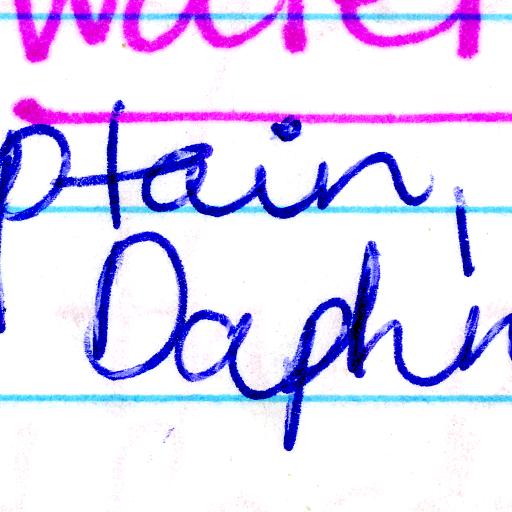 water
ptain,
Daphn